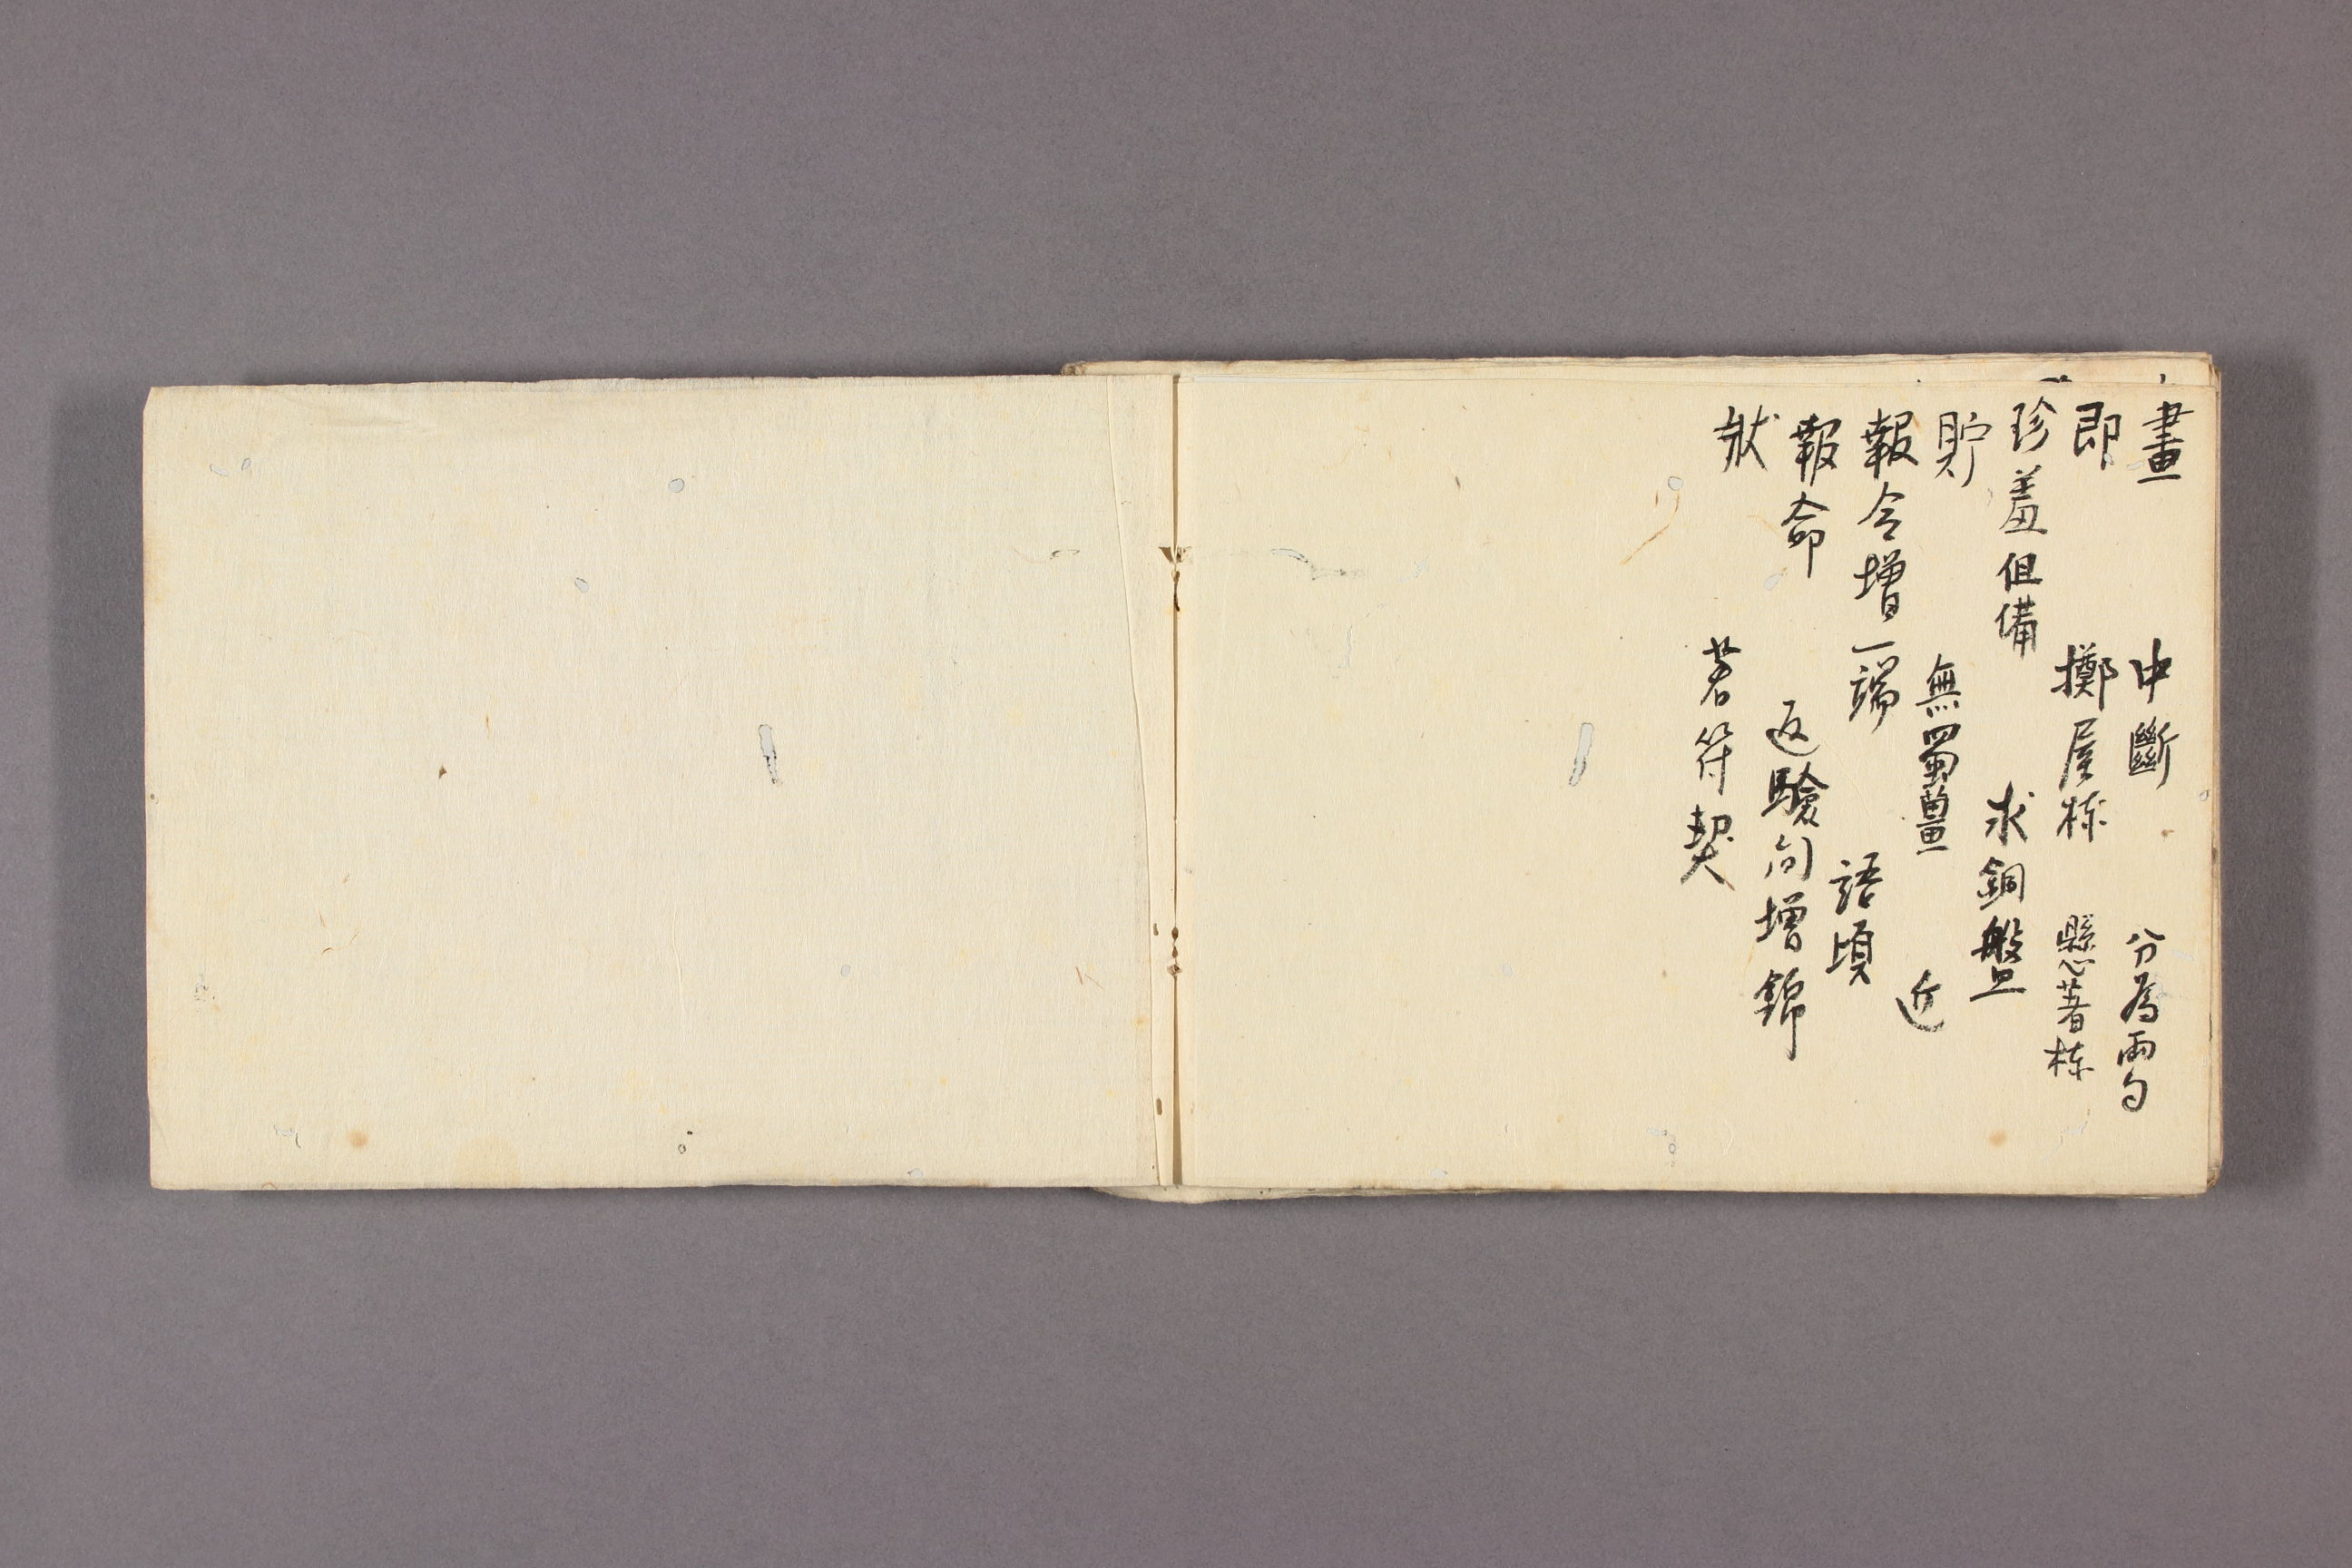 畫 中斷 分爲兩勾
即 擲屋棟 懸著棟
珍羞但備 求銅盤
貯 無蜀薑 近
報令增一端 語頃
報命 返驗向增錦
狀 若符契